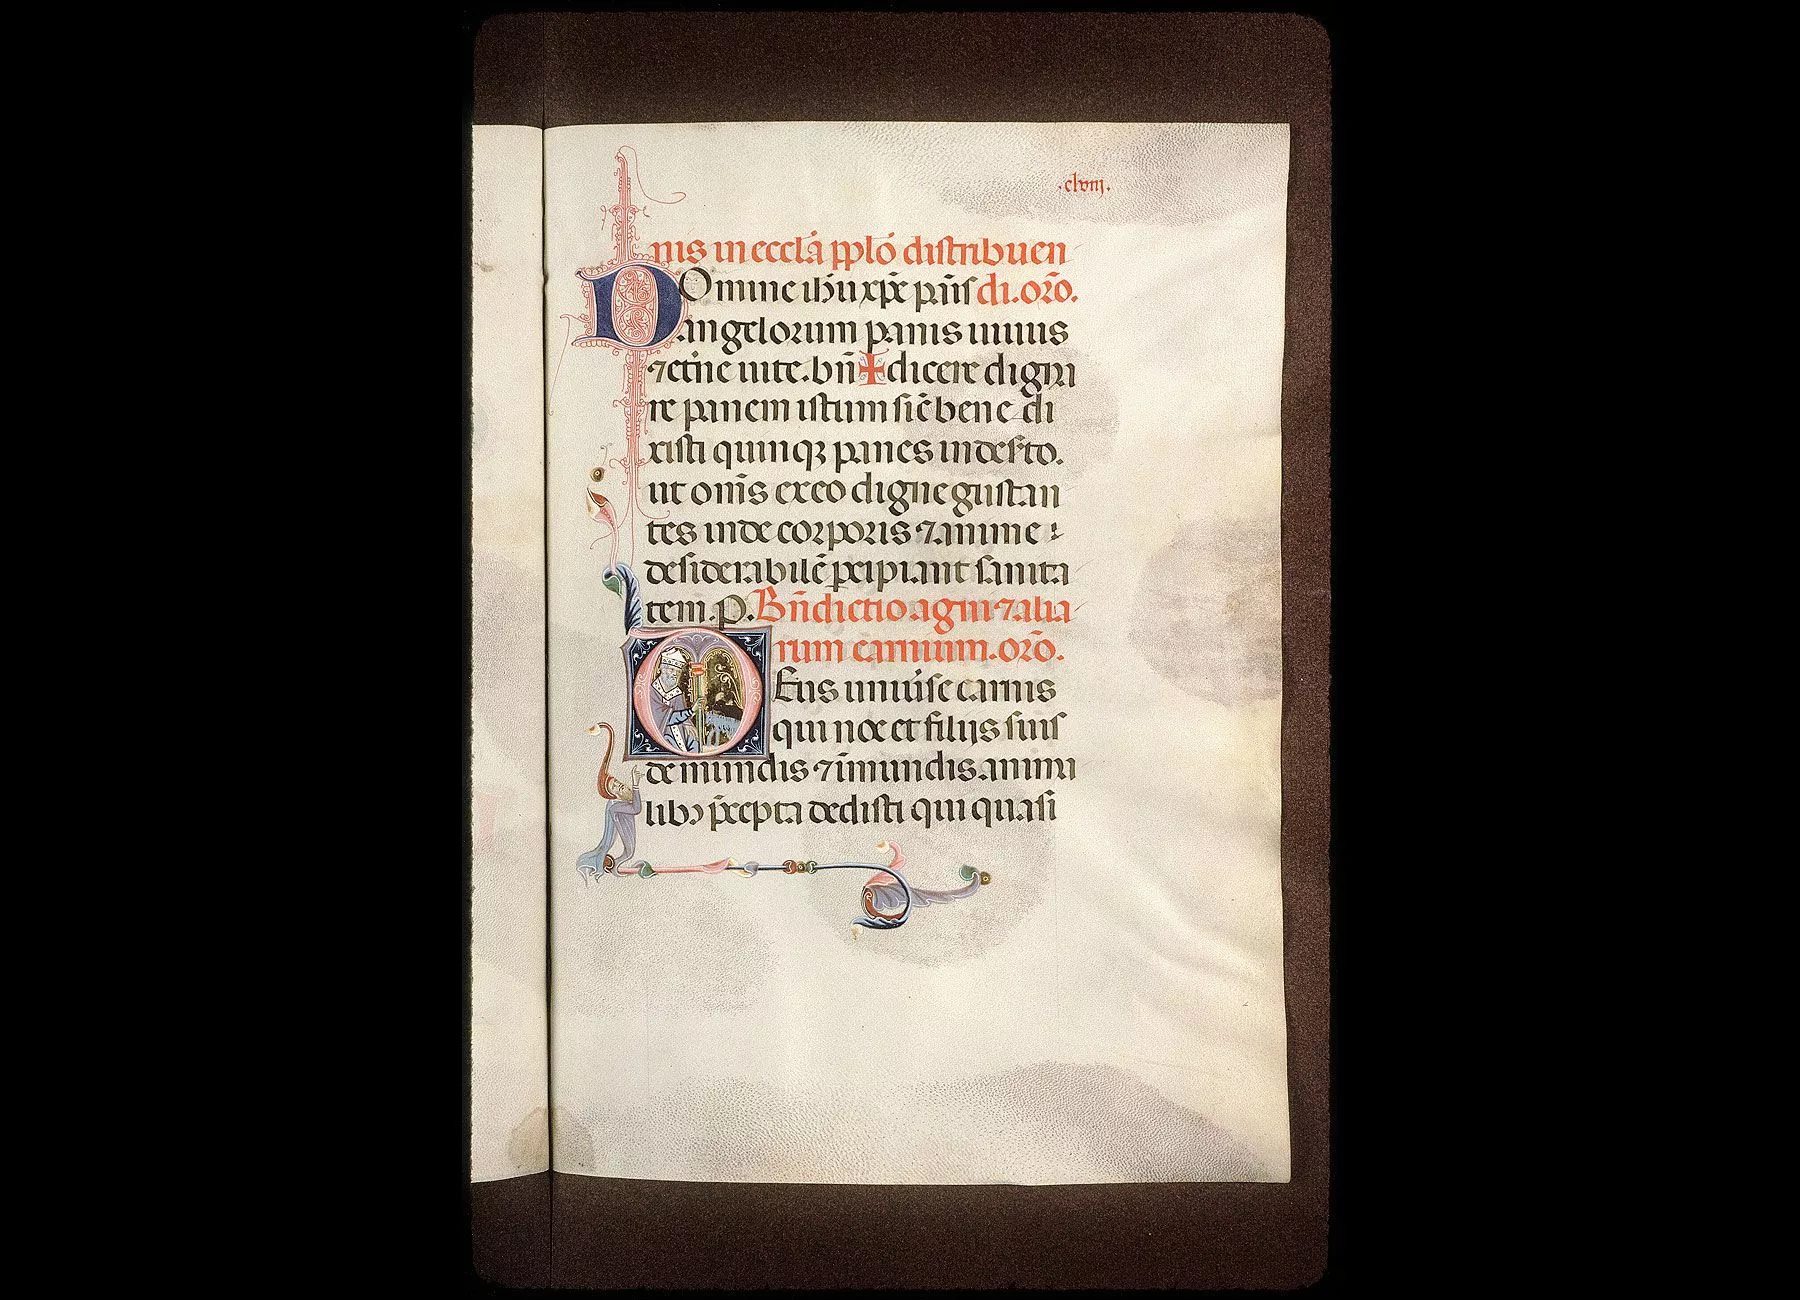 .clviij.
nis in eccl̄a pp̄lo distribuen
DOmine ih̄u xp̄e pa̅nis di. or̄o.
angelorum panis uiuus
⁊ et̄ne uite. bn̄ ✠ dicere digna
re panem istum sic̄ bene di
xisti quinqꝫ panes in des̄to.
ut om̄s ex eo digne gustan
tes inde corporis ⁊ anime
desiderabilē ꝑcipiant sanita
tem. P. Bn̄dictio agni ⁊ alia
rum carnium. or̄o.
DEus uniu̅se carnis
qui noe et filijs suis
de mundis ⁊ īmundis anima
libꝫ p̄cepta dedisti qui quasi